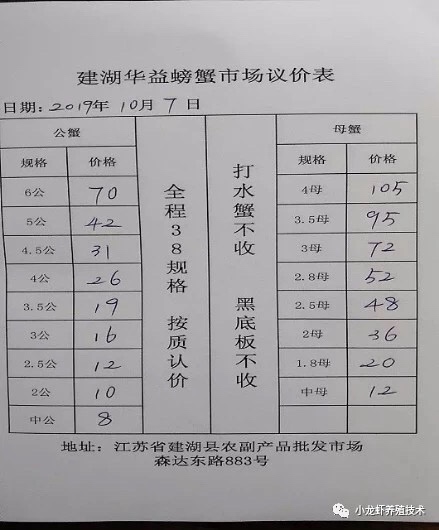 建湖华益螃蟹市场议价表
日期: 2019年 10月 7日
公蟹 母蟹
规格 价格 规格 价格
6公 70 4母 105
5公 42 3.5母 95
4.5公 31 3母 72
4公 26 2.8母 52
3.5公 19 2.5母 48
3公 16 2母 36
2.5公 12 1.8母 20
2公 10 中母 12
中公 8
全程38规格 按质认价
打水蟹不收 黑底板不收
地址: 江苏省建湖县农副产品批发市场
森达东路883号
小龙虾养殖技术